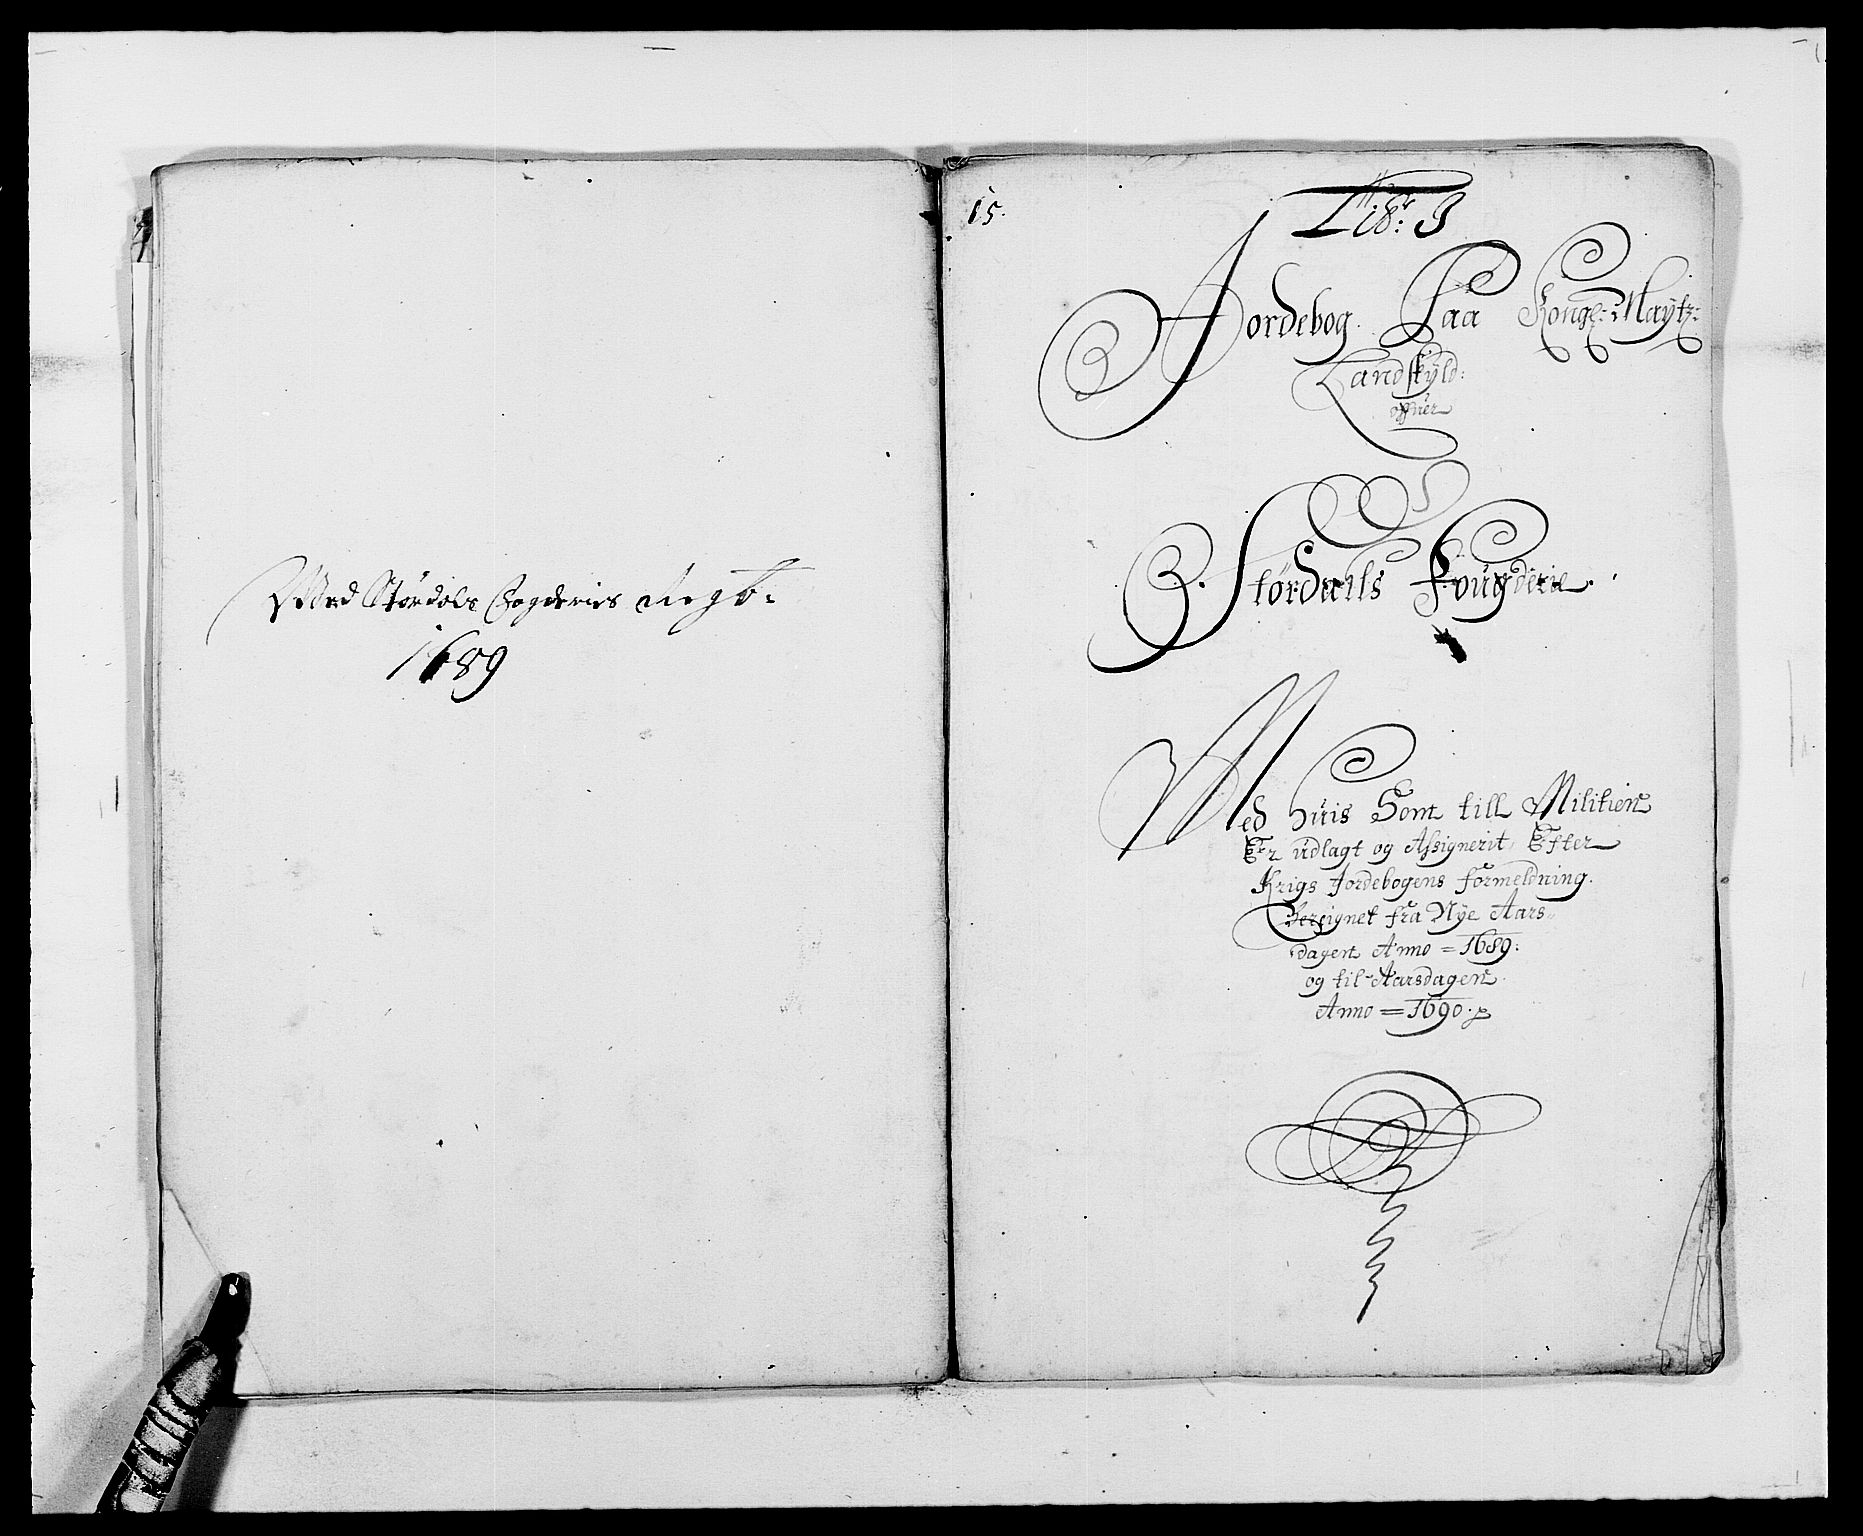 Med Størdals Fogderies Regb:
1689
15.
Litr: J
Jordebog Paa Kongl: Maytz:
Landskyld:
offuer
Størdalls Fougderie.
Med huis Som till Militien
Er udlagt og Assignerit Efter
Krigs Jordebogens formeldning.
Beregnet fra Nye Aars-
dagen Anno = 1689:
og til Aarsdagen
Anno = 1690.